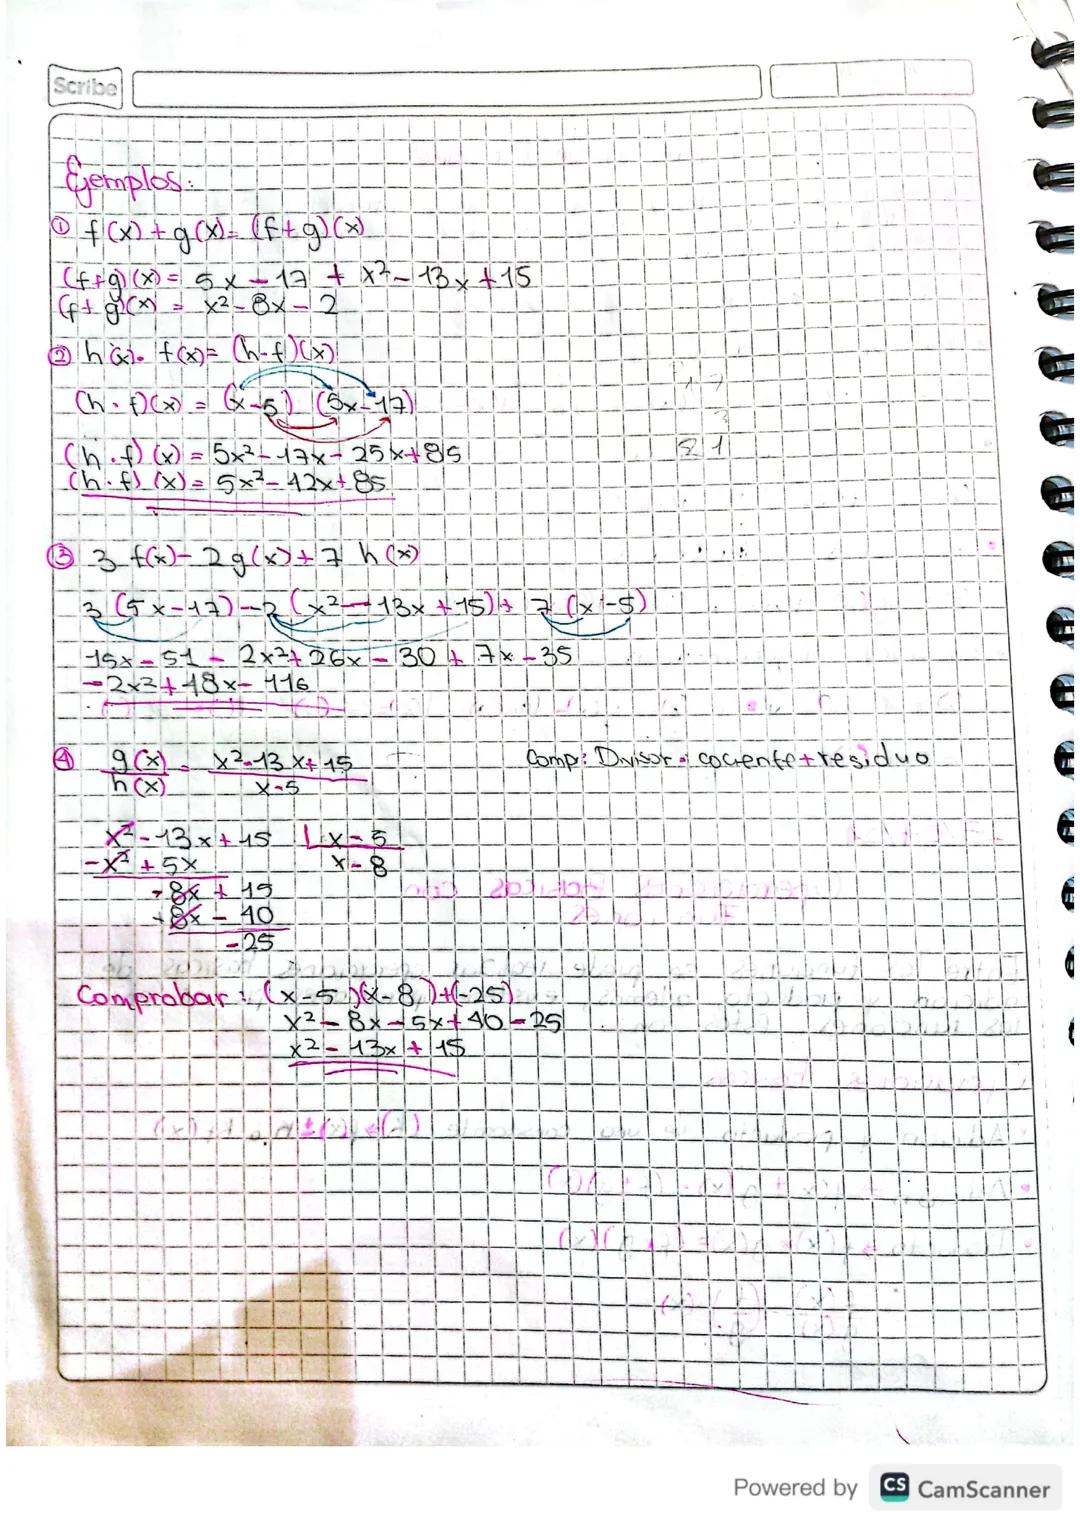 Scribe
Ejemplos:
① f(x) + g(x) = (f+g)(x)
(f+g)(x) = 5x - 17 + x² - 13x + 15
(f+g)(x) = x² - 8x - 2
② h(x) · f(x) = (h·f)(x)
(h·f)(x) = (x-5) (5x-17)
(h·f)(x) = 5x² - 17x - 25x + 85
(h·f)(x) = 5x² - 42x + 85
③ 3 f(x) - 2g(x) + 7 h(x)
3 (5x-17) - 2 (x² - 13x + 15) + 7 (x-5)
15x - 51 - 2x² + 26x - 30 + 7x - 35
-2x² + 48x - 116
④ g(x) = x² - 13x + 15 Comp: Divisor · cociente + residuo
h(x) x-5
x² - 13x + 15 x - 5
-x² + 5x x - 8
-8x + 15
+8x - 40
-25
Comprobar: (x-5)(x-8)+(-25)
x² - 8x - 5x + 40 - 25
x² - 13x + 15
Powered by CS CamScanner